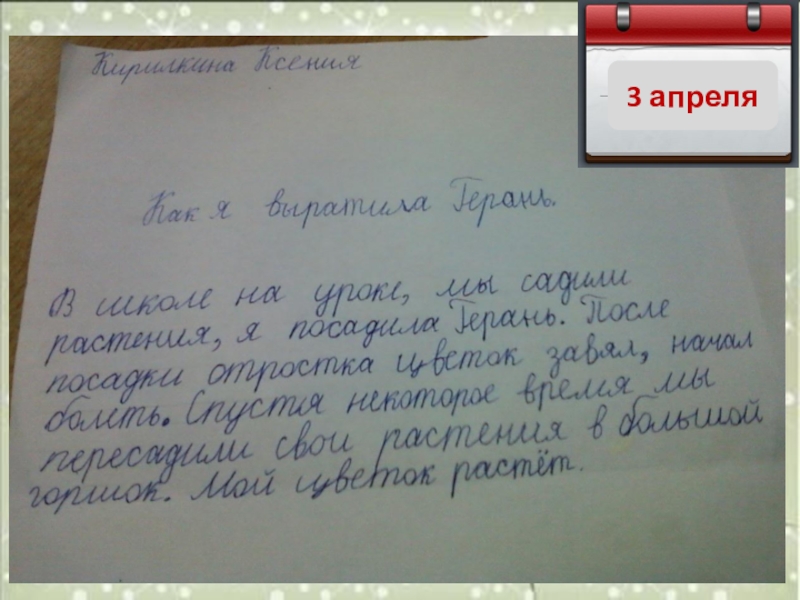 Кирилкина Ксения
3 апреля
Как я выратила Герань.
В школе на уроке, мы садили
растения, я посадила Герань. После
посадки отростка цветок завял, начал
болеть. Спустя некоторое время мы
пересадили свои растения в большой
горшок. Мой цветок растёт.